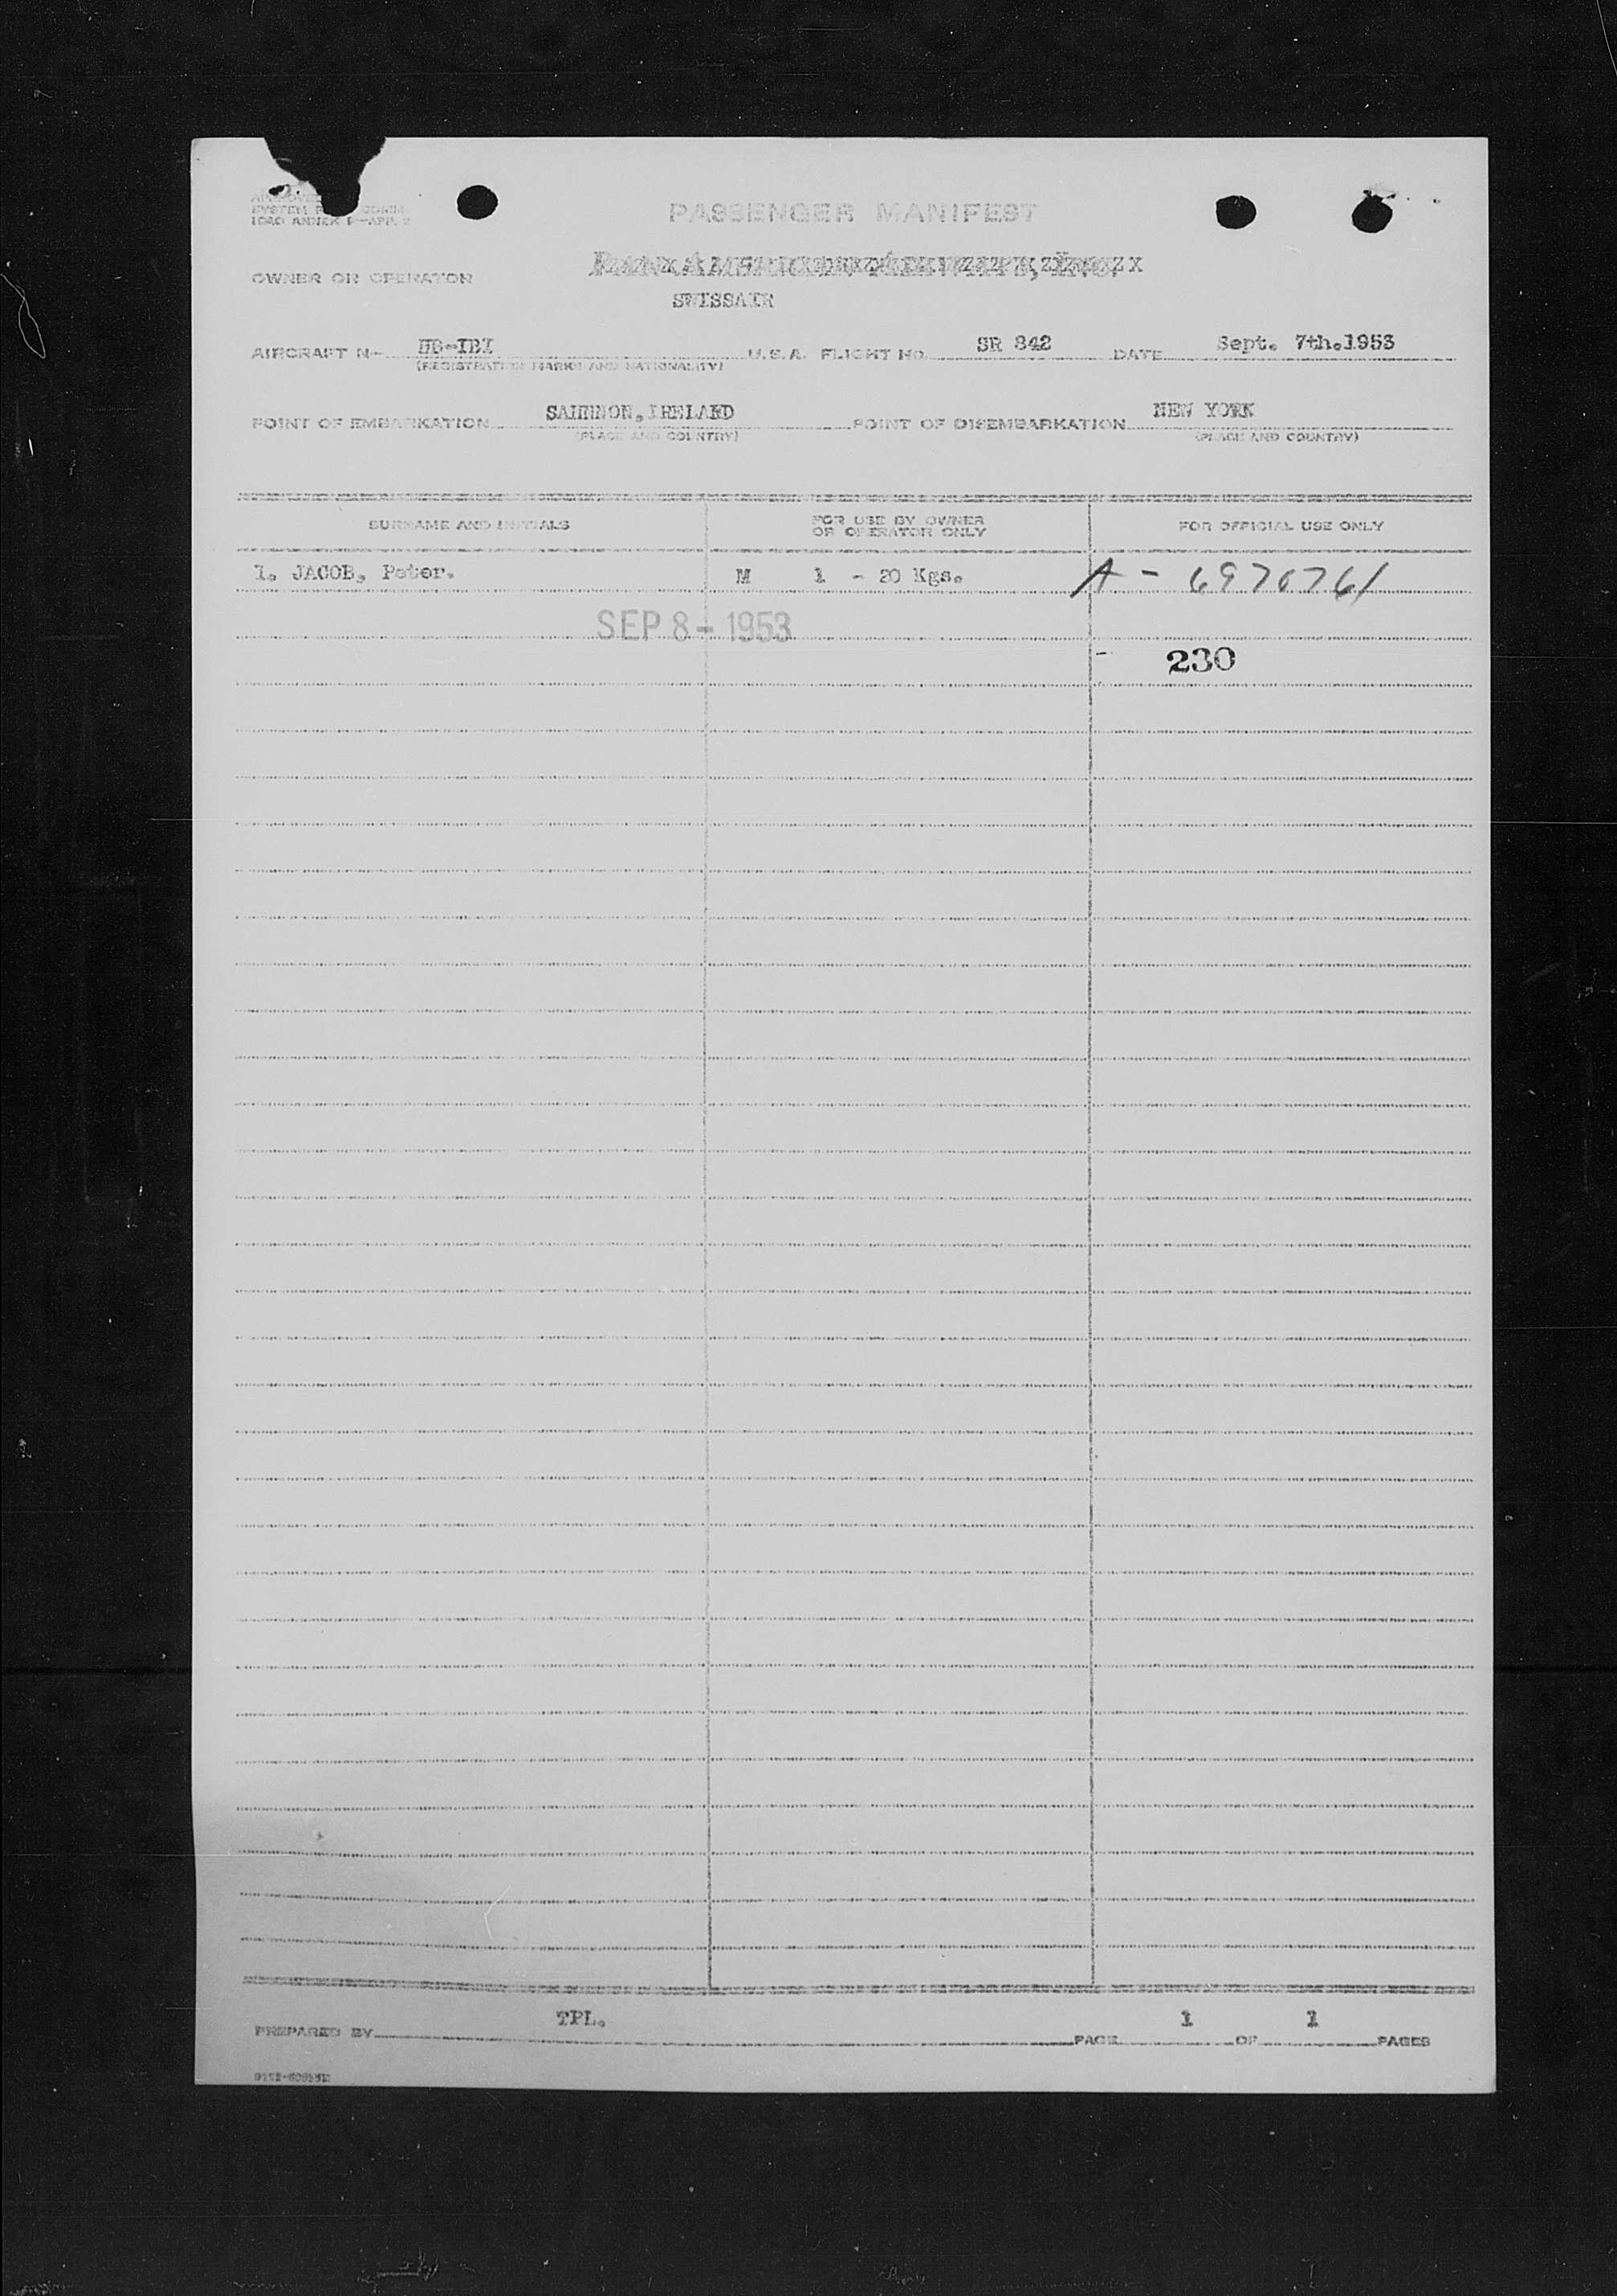 APPROVED
SYSTEM COMM
ICAO ANNEX 9—APP. 2
PASSENGER MANIFEST
OWNER OR OPERATOR
SWISSAIR
AIRCRAFT No HB-IBI U.S.A. FLIGHT NO. SR 842 DATE Sept. 7th.1953
(REGISTRATION MARKS AND NATIONALITY)
POINT OF EMBARKATION SAHNNON,IRELAND POINT OF DISEMBARKATION NEW YORK
(PLACE AND COUNTRY) (PLACE AND COUNTRY)
SURNAME AND INITIALS FOR USE BY OWNER OR OPERATOR ONLY FOR OFFICIAL USE ONLY
1. JACOB, Peter. M 1 - 20 Kgs. A - 6970761
SEP 8 - 1953
230
PREPARED BY TPL. PAGE 1 OF 1 PAGES